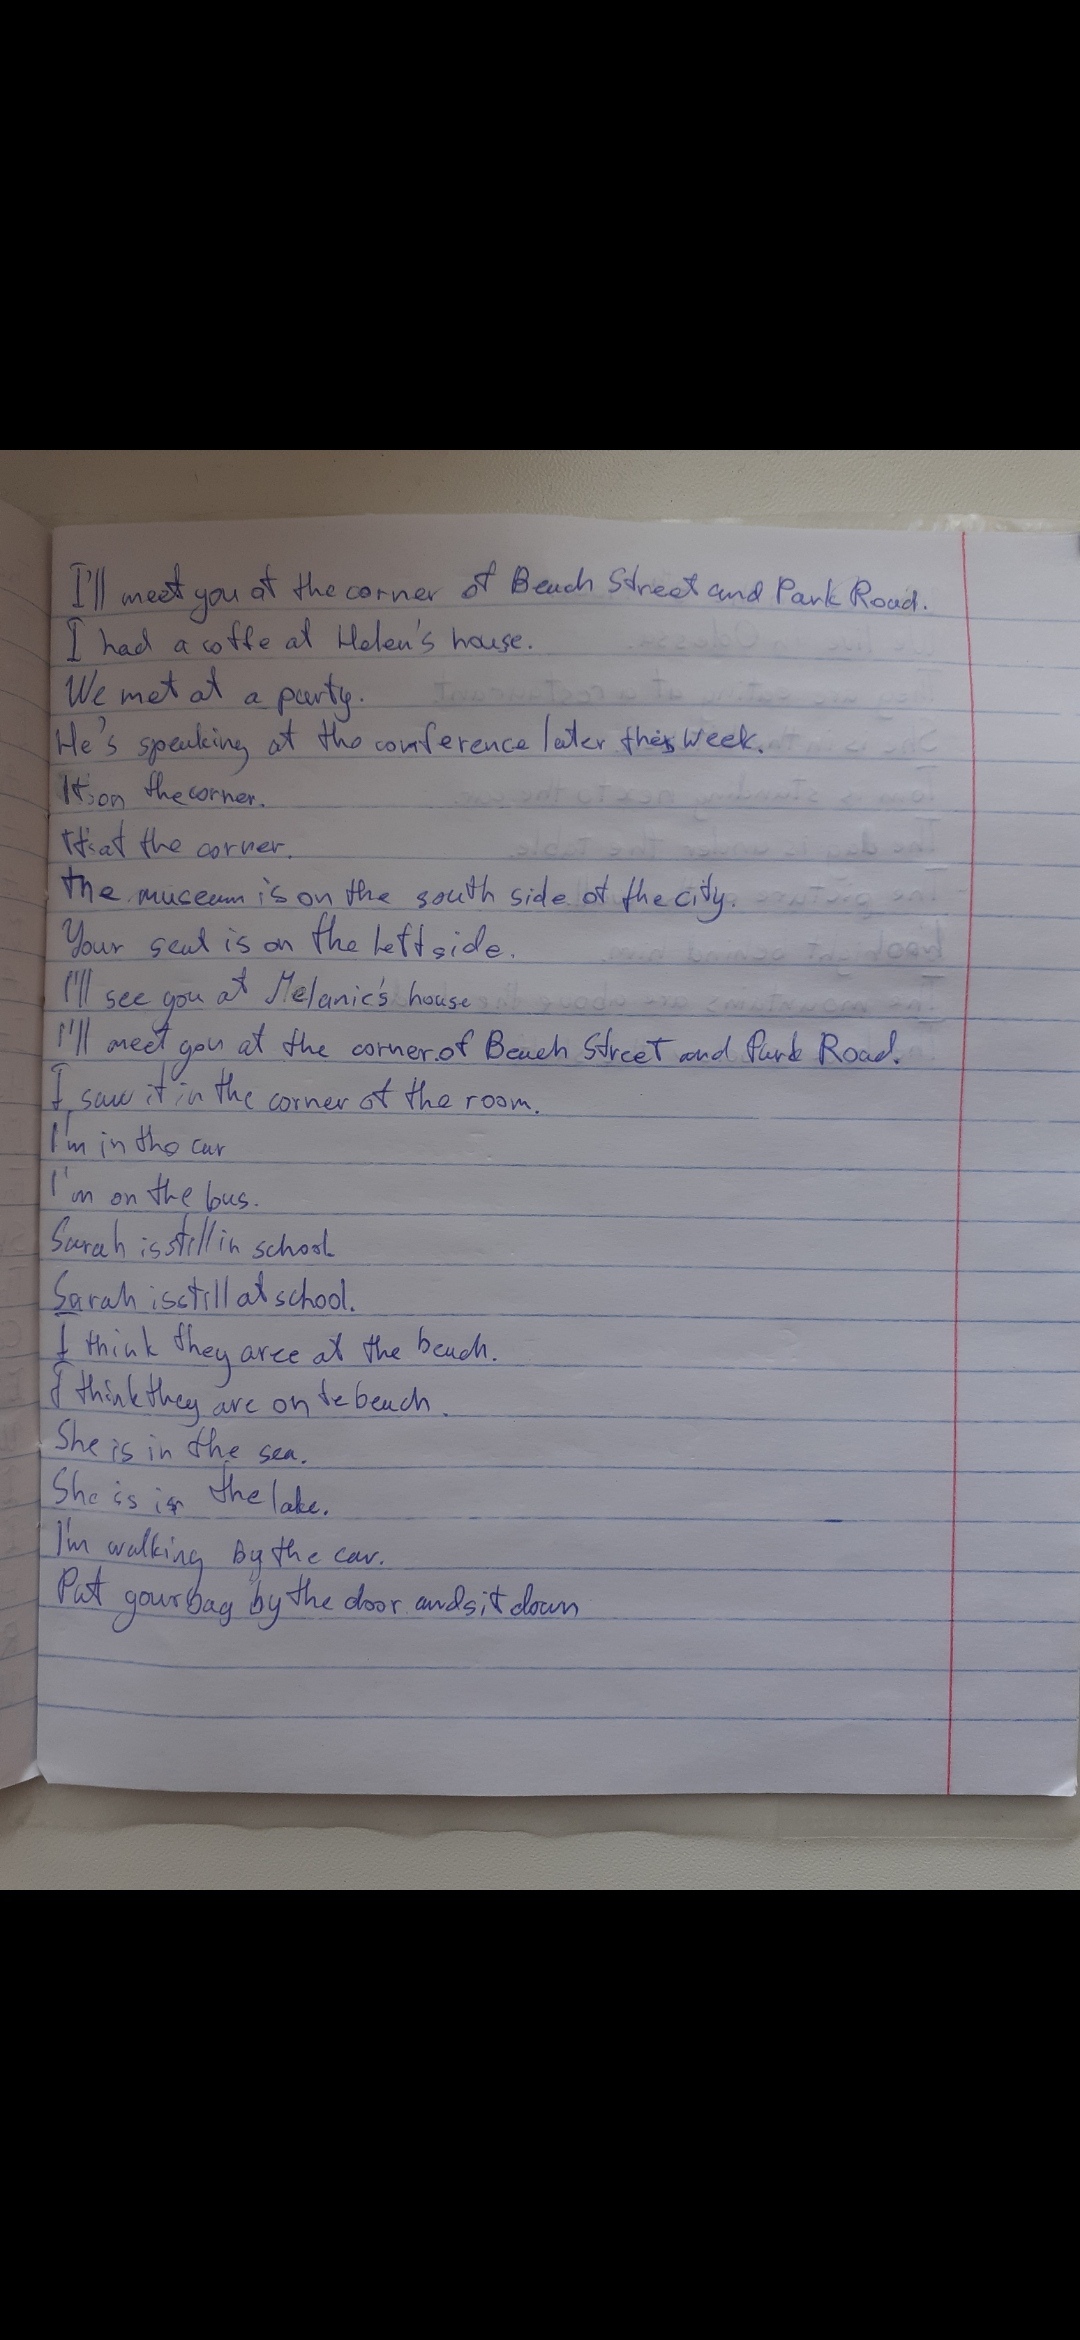 I'll meet you at the corner of Beach Street and Park Road.
I had a coffe at Helen's house.
We met at a party.
He's speaking at the conference later this week.
It's on the corner.
It's at the corner.
the museum is on the south side of the city.
Your seat is on the left side.
I'll see you at Melanie's house
I'll meet you at the corner of Beach Street and Park Road.
I saw it in the corner of the room.
I'm in the car
I'm on the bus.
Sarah is still in school
Sarah is still at school.
I think they aree at the beach.
I think they are on te beach.
She is in the sea.
She is in the lake.
I'm walking by the car.
Put your bag by the door and sit down